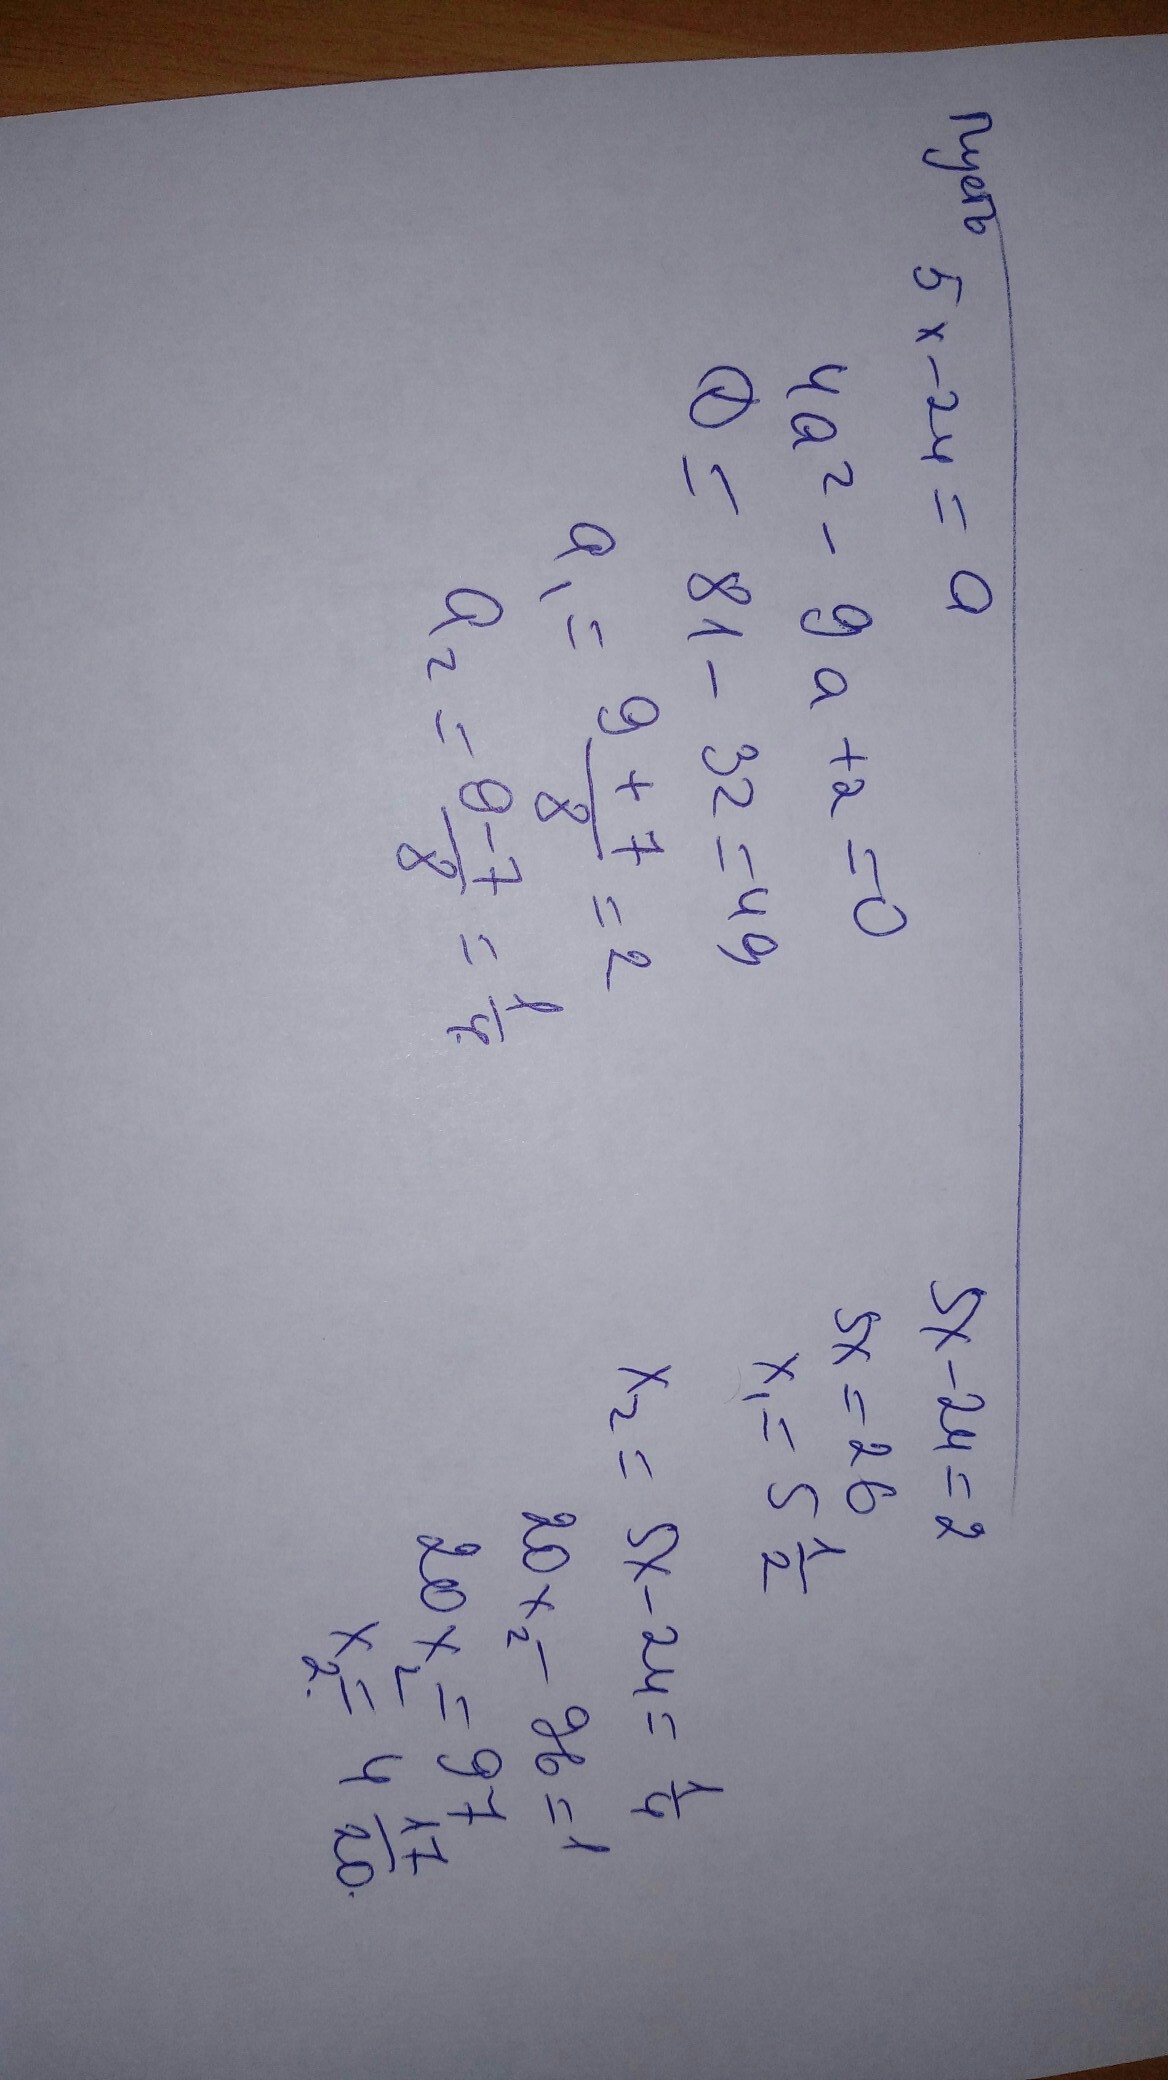 Пусть 5x-24=a
4a²-9a+2=0
D=81-32=49
a₁=9+7/8=2
a₂=9-7/8=1/4
5x-24=2
5x=26
x₁=5 1/2
x₂=5x-24=1/4
20x₂-96=1
20x₂=97
x₂=4 17/20.